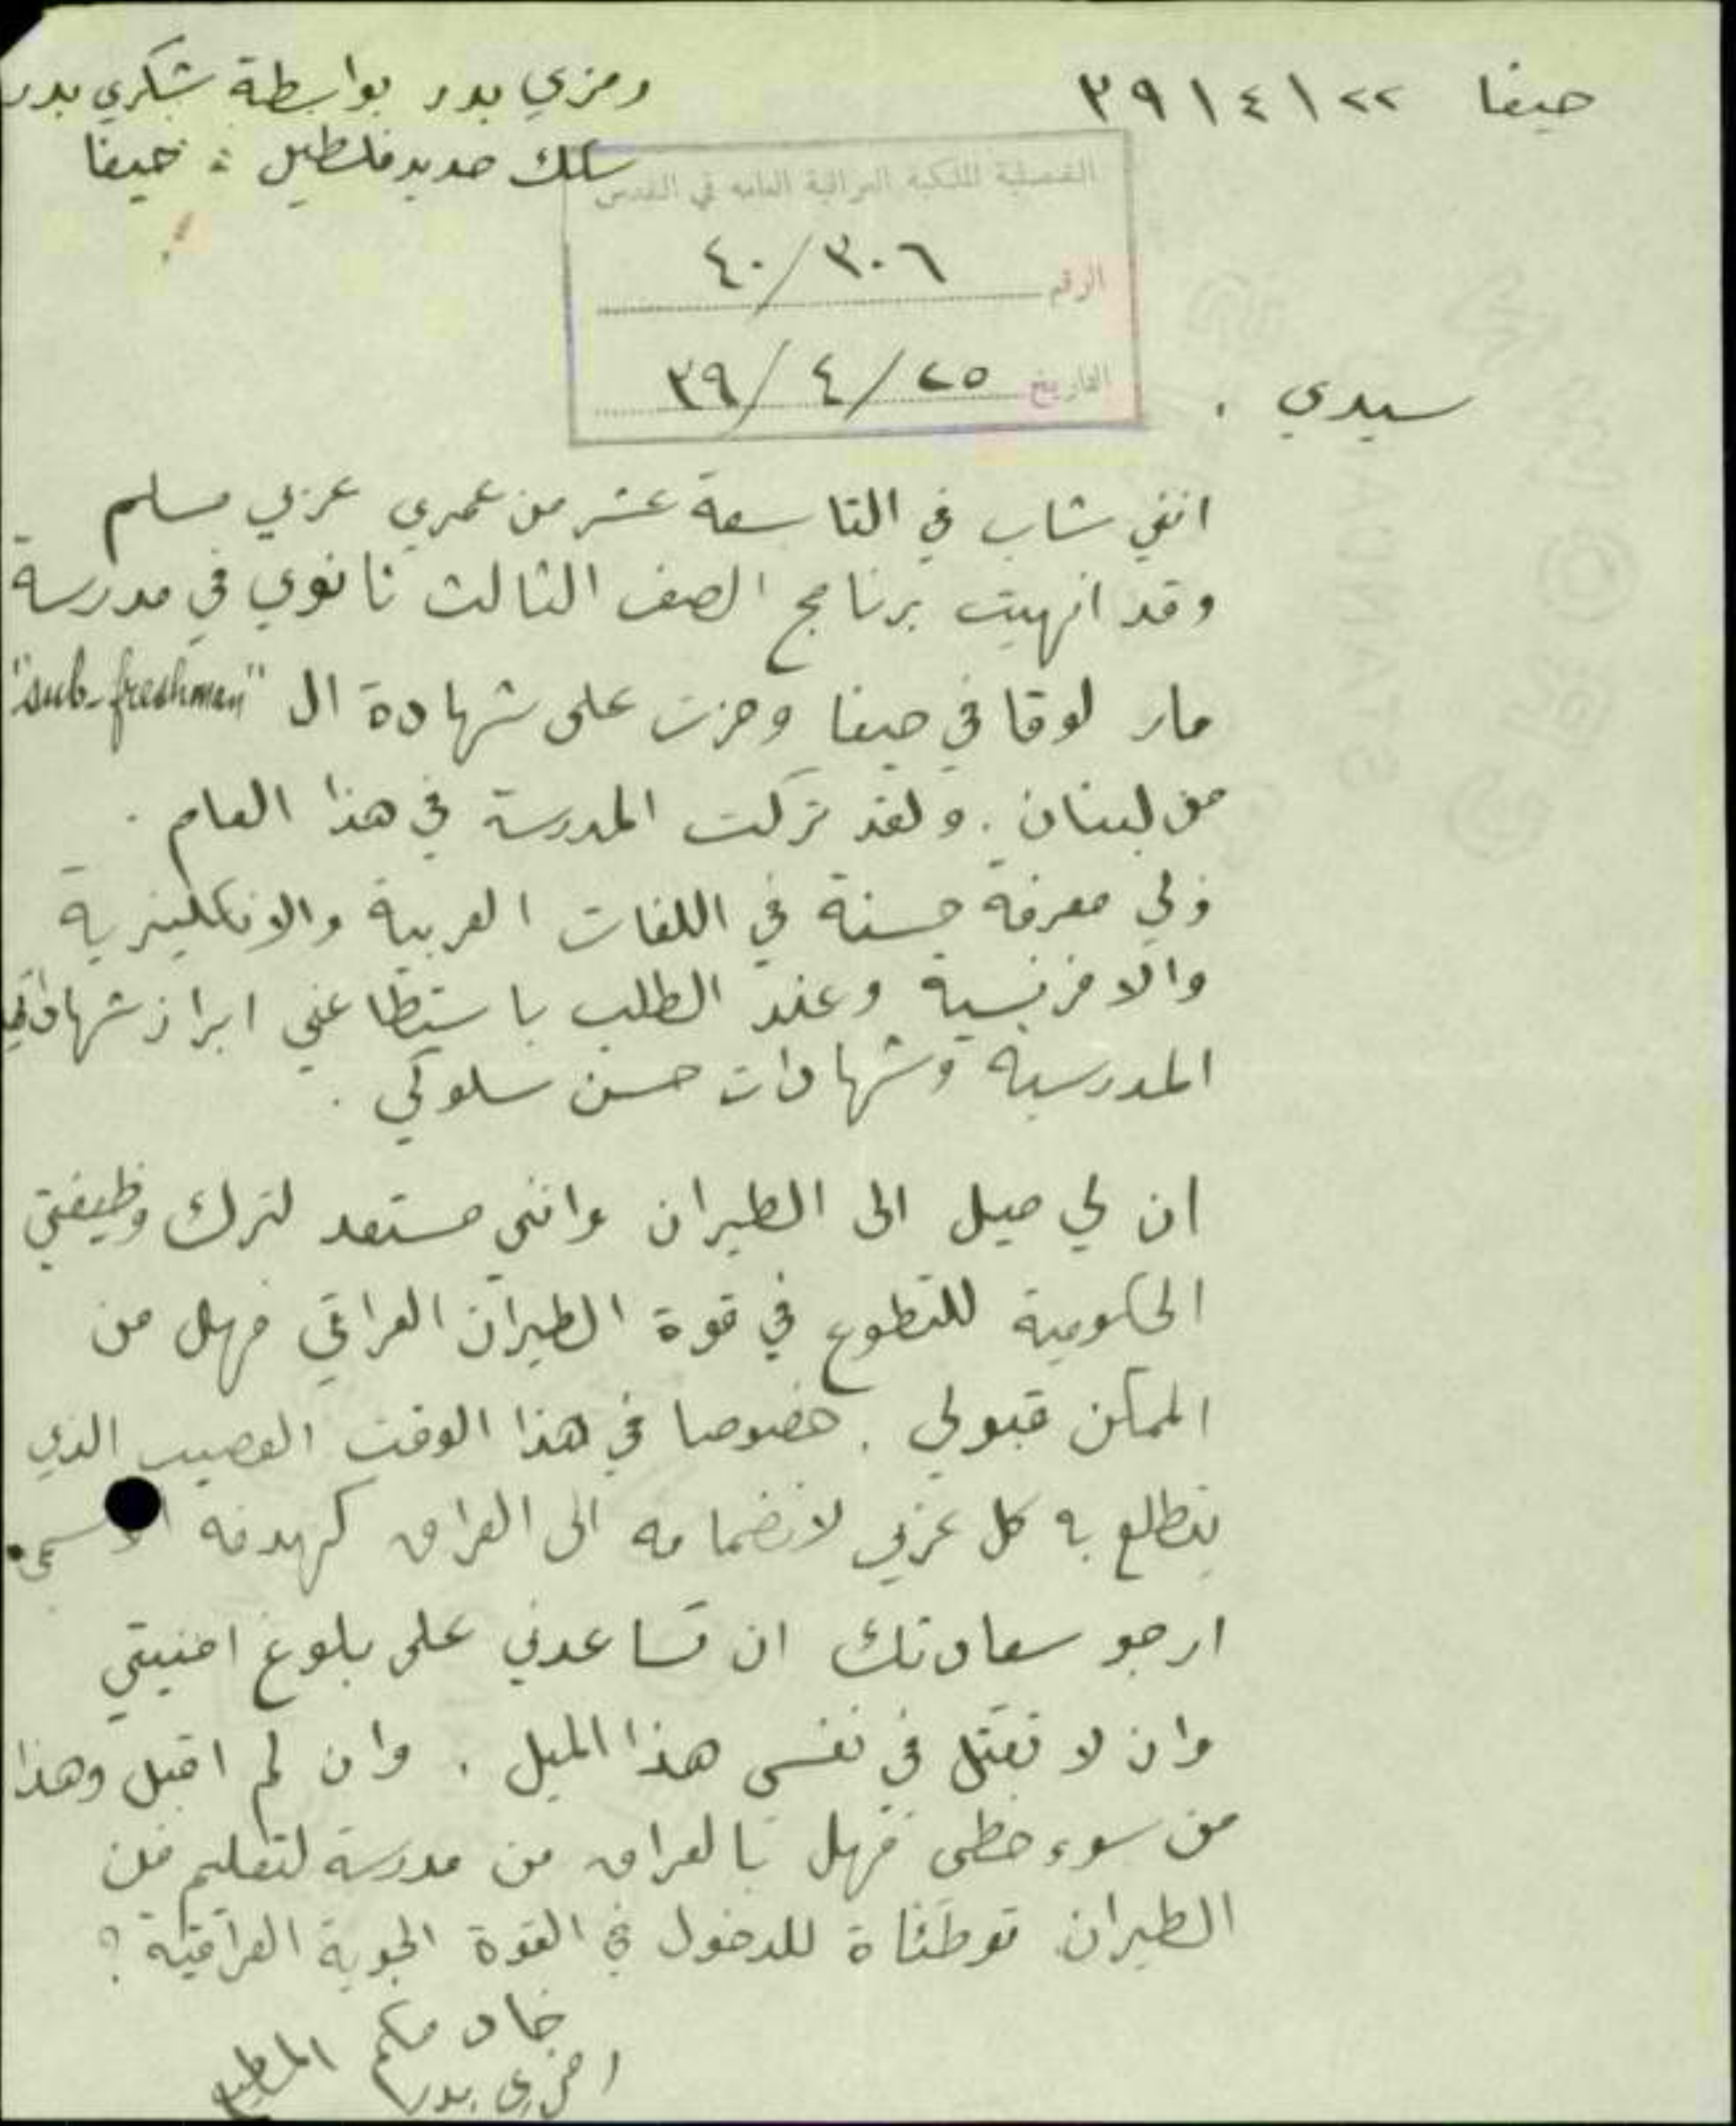 حيفا ٢٢\٤\٣٩
رمزي بدر بواسطة شكري بدر
سكك حديد فلسطين : حيفا
القنصلية الملكية العراقية العامه في القدس
الرقم ٤٠/٣٠٦
التاريخ ٢٥/٤/٣٩
سيدي .
انني شاب في التاسعة عشر من عمري عربي مسلم
وقد انهيت برنامج الصف الثالث ثانوي في مدرسة
مار لوقا في حيفا وحزت على شهادة ال "sub-freshman"
من لبنان . ولقد تركت المدرسة في هذا العام .
ولي معرفة حسنة في اللغات العربية والانكليزية
والافرنسية وعند الطلب باستطاعتي ابراز شهاداتي
المدرسية وشهادات حسن سلوكي .
ان لي ميل الى الطيران وانني مستعد لترك وظيفتي
الحكومية للتطوع في قوة الطيران العراقي فهل من
الممكن قبولي . خصوصا في هذا الوقت العصيب الذي
يتطلع به كل عربي لانضمامه الى العراق كهدفه الاسمى.
ارجو سعادتك ان تساعدني على بلوغ امنيتي
وان لا تقتل في نفسي هذا الميل . وان لم اقبل وهذا
من سوء حظي فهل بالعراق من مدرسة لتعليم فن
الطيران توطئاة للدخول في القوة الجوية العراقية ؟
خادمكم المطيع
رمزي بدر